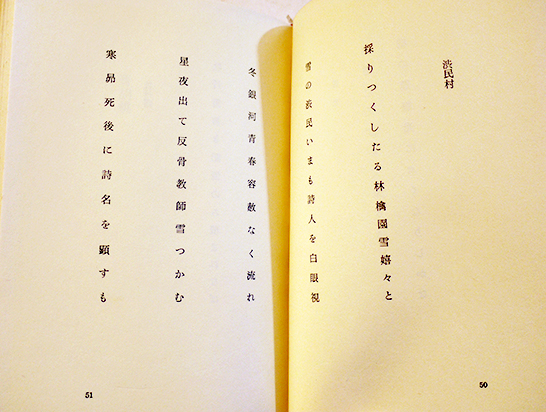 渋民村
採りつくしたる林檎園雪嬉々と
雪の渋民いまも詩人を白眼視
50
冬銀河青春容赦なく流れ
星夜出て反骨教師雪つかむ
寒昴死後に詩名を顕すも
51